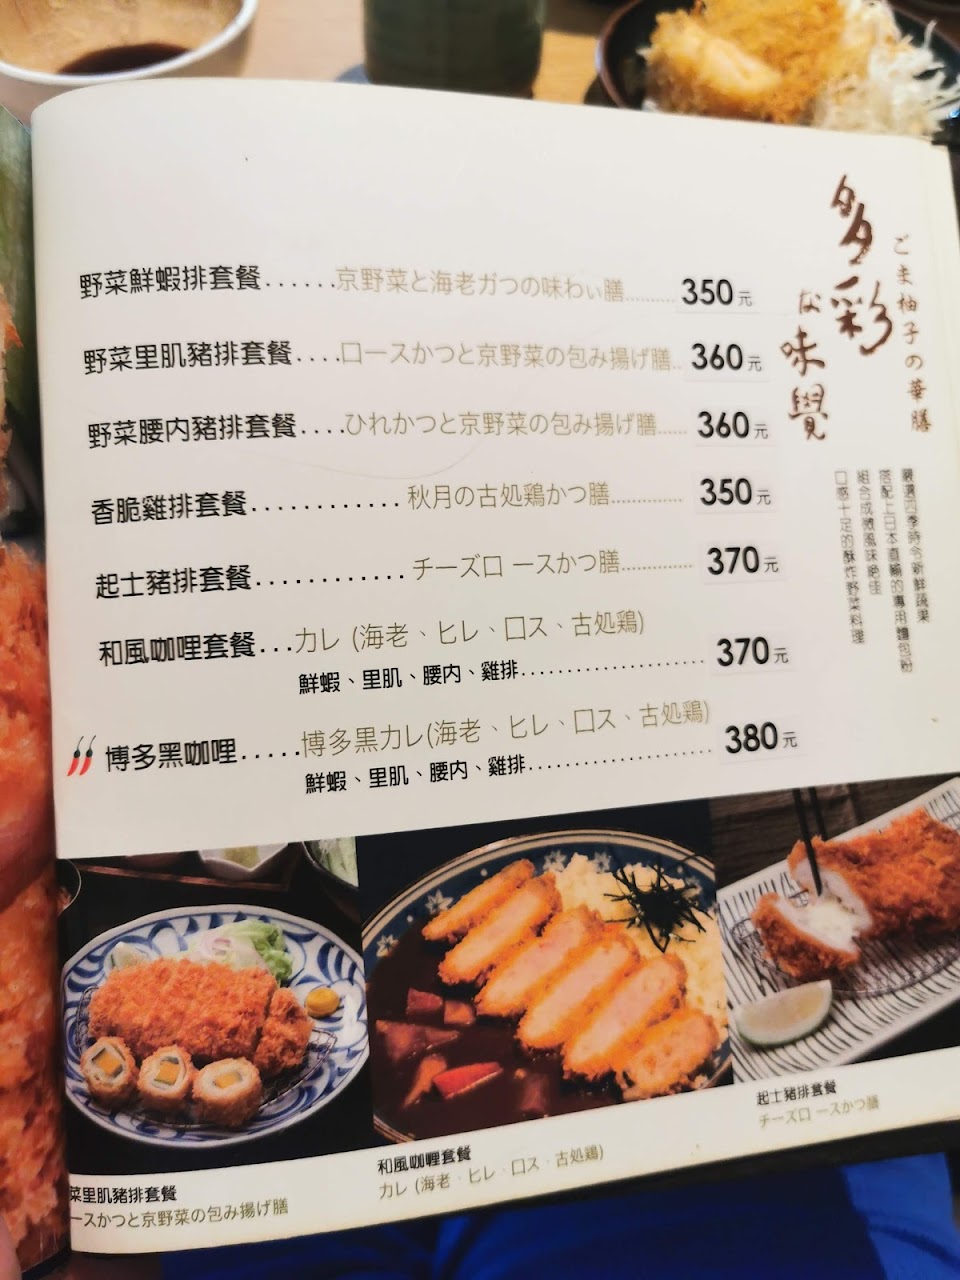 多彩な味覺
ごま柚子の華膳
嚴選四季時令新鮮蔬果
搭配上日本直輸的專用麵包粉
組合成微風味絕佳
口感十足的酥炸野菜料理
野菜鮮蝦排套餐......京野菜と海老ガつの味わぃ膳.......... 350元
野菜里肌豬排套餐....口ースかつと京野菜の包み揚げ膳.. 360元
野菜腰內豬排套餐....ひれかつと京野菜の包み揚げ膳...... 360元
香脆雞排套餐............秋月の古処鶏かつ膳............... 350元
起士豬排套餐............チーズロ ースかつ膳............... 370元
和風咖哩套餐...カレ (海老、ヒレ、囗ス、古処鶏)
鮮蝦、里肌、腰內、雞排...................... 370元
博多黑咖哩.....博多黒カレ(海老、ヒレ、囗ス、古処鶏)
鮮蝦、里肌、腰內、雞排...................... 380元
菜里肌豬排套餐
ースかつと京野菜の包み揚げ膳
和風咖哩套餐
カレ (海老、ヒレ、囗ス、古処鶏)
起士豬排套餐
チーズロ ースかつ膳